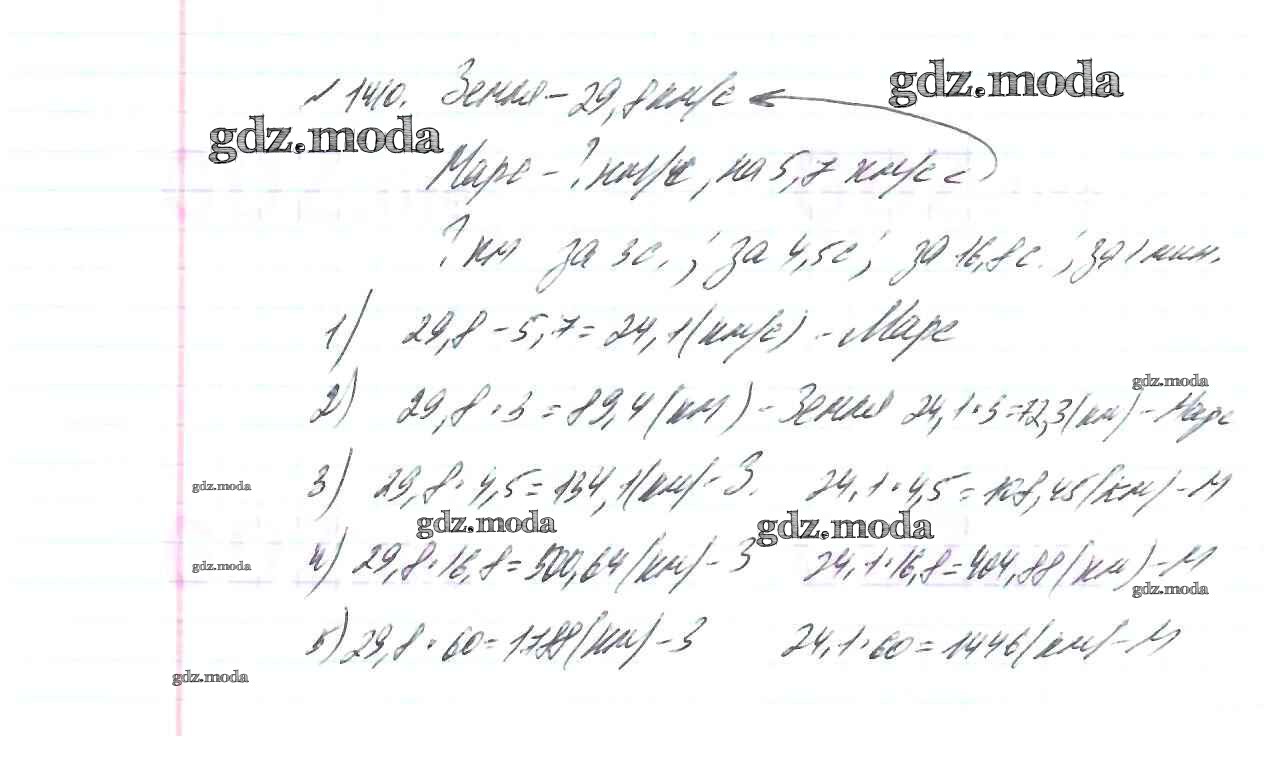 № 1410. Земля – 29,8 км/с
gdz.moda
gdz.moda
Марс – ? км/с, на 5,7 км/с <
? км за 3с. ; за 4,5с ; за 16,8с. ; за 1 мин.
1) 29,8 – 5,7 = 24,1 (км/с) – Марс
gdz.moda
2) 29,8 · 3 = 89,4 (км) – Земля 24,1 · 3 = 72,3 (км) – Марс
3) 29,8 · 4,5 = 134,1 (км) – З. 24,1 · 4,5 = 108,45 (км) – М
gdz.moda
gdz.moda
gdz.moda
4) 29,8 · 16,8 = 500,64 (км) – З 24,1 · 16,8 = 404,88 (км) – М
gdz.moda
gdz.moda
5) 29,8 · 60 = 1788 (км) – З 24,1 · 60 = 1446 (км) – М
gdz.moda